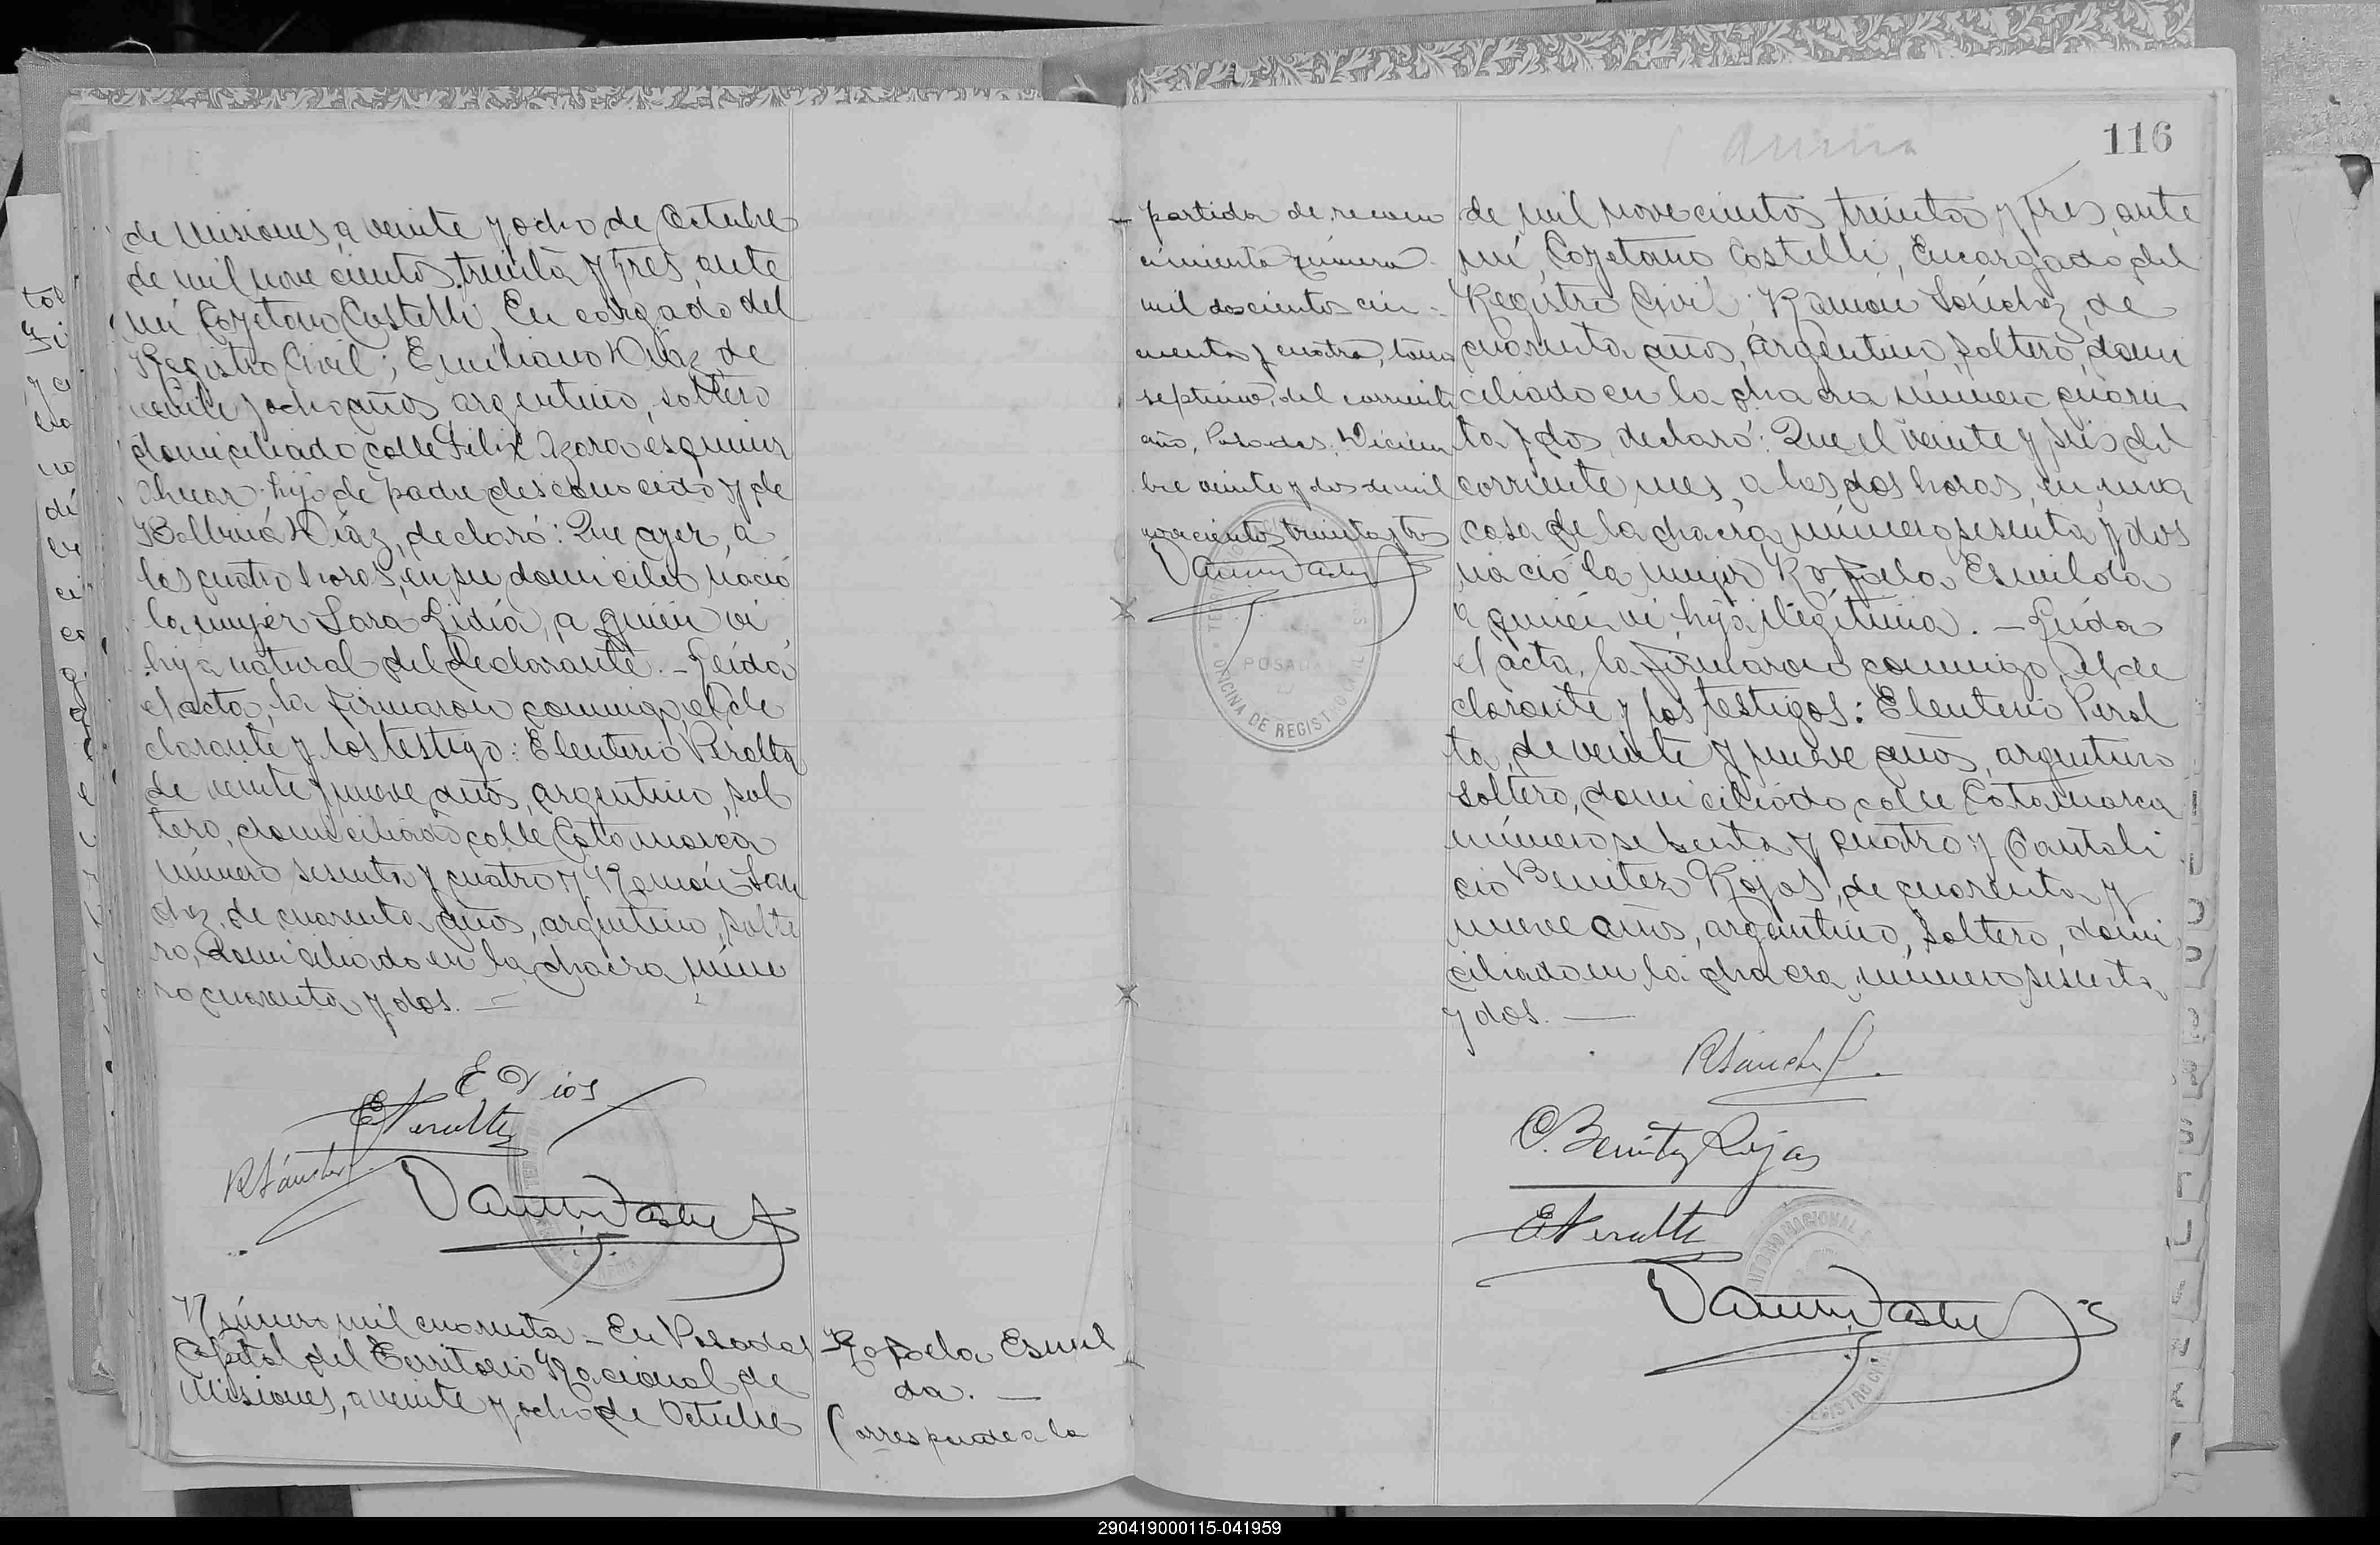 de Misiones, a veinte y ocho de Octubre
de mil novecientos treinta y tres, ante
mí, Cayetano Castelli, Encargado del
Registro Civil; Emiliano Díaz, de
veinte y ocho años, argentino, soltero
domiciliado calle Félix Azara esquina
hijo de padre desconocido y de
Balbina Díaz, declaró: Que ayer, a
las cuatro horas, en su domicilio nació
la mujer Sara Lidia, a quién vi
hija natural del declarante. - Leída
el acta, la firmaron conmigo, el de
clarante y los testigo: Eleuterio Peralta
de veinte y nueve años, argentino, sol
tero, domiciliado calle Catamarca
número sesenta y cuatro y Ramón San
chez, de cuarenta años, argentino, solte
ro, domiciliado en la chacra núme
ro cuarenta y dos. -
E Dios
E Peralta
R Sánchez
Número mil cuarenta - En Posadas
Capital del Territorio Nacional de
Misiones, a veinte y ocho de Octubre
Rafaela Esmil
da. -
Corresponde a la
116
partida de recono
cimiento número
mil doscientos cin-
cuenta y cuatro, tomo
septimo, del corriente
año, Posadas, Diciem
bre veinte y dos de mil
novecientos treinta y tres
POSADAS
OFICINA DE REGISTRO CIVIL
de mil novecientos treinta y tres, ante
mí, Cayetano Castelli, Encargado del
Registro Civil; Ramón Sánchez, de
cuarenta años, Argentino, soltero, domi
ciliado en la chacra número cuaren
ta y dos, declaró: Que el veinte y seis del
corriente mes, a las dos horas, en una
casa de la chacra número sesenta y dos
nació la mujer Rafaela Esmilda
a quién vi, hija ilegítima. - Leída
el acta, la firmaron conmigo, el de
clarante y los testigos: Eleuterio Peral
ta, de veinte y nueve años, argentino
soltero, domiciliado calle Catamarca
número sesenta y cuatro y Cantali
cio Benitez Rojas, de cuarenta y
nueve años, argentino, soltero, domi
ciliado en la chacra número sesenta
y dos. -
R Sánchez
C. Benitez Rojas
E Peralta
290419000115-041959